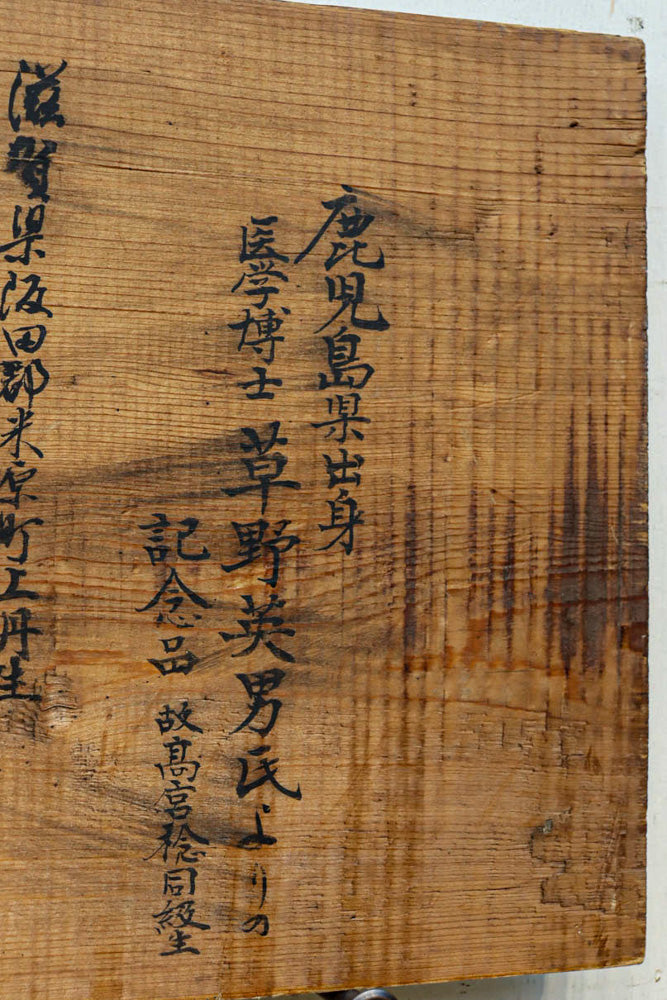 鹿児島県出身
医学博士 草野英男氏よりの
記念品 故髙宮稔同級生
滋賀県阪田郡米原町上丹生